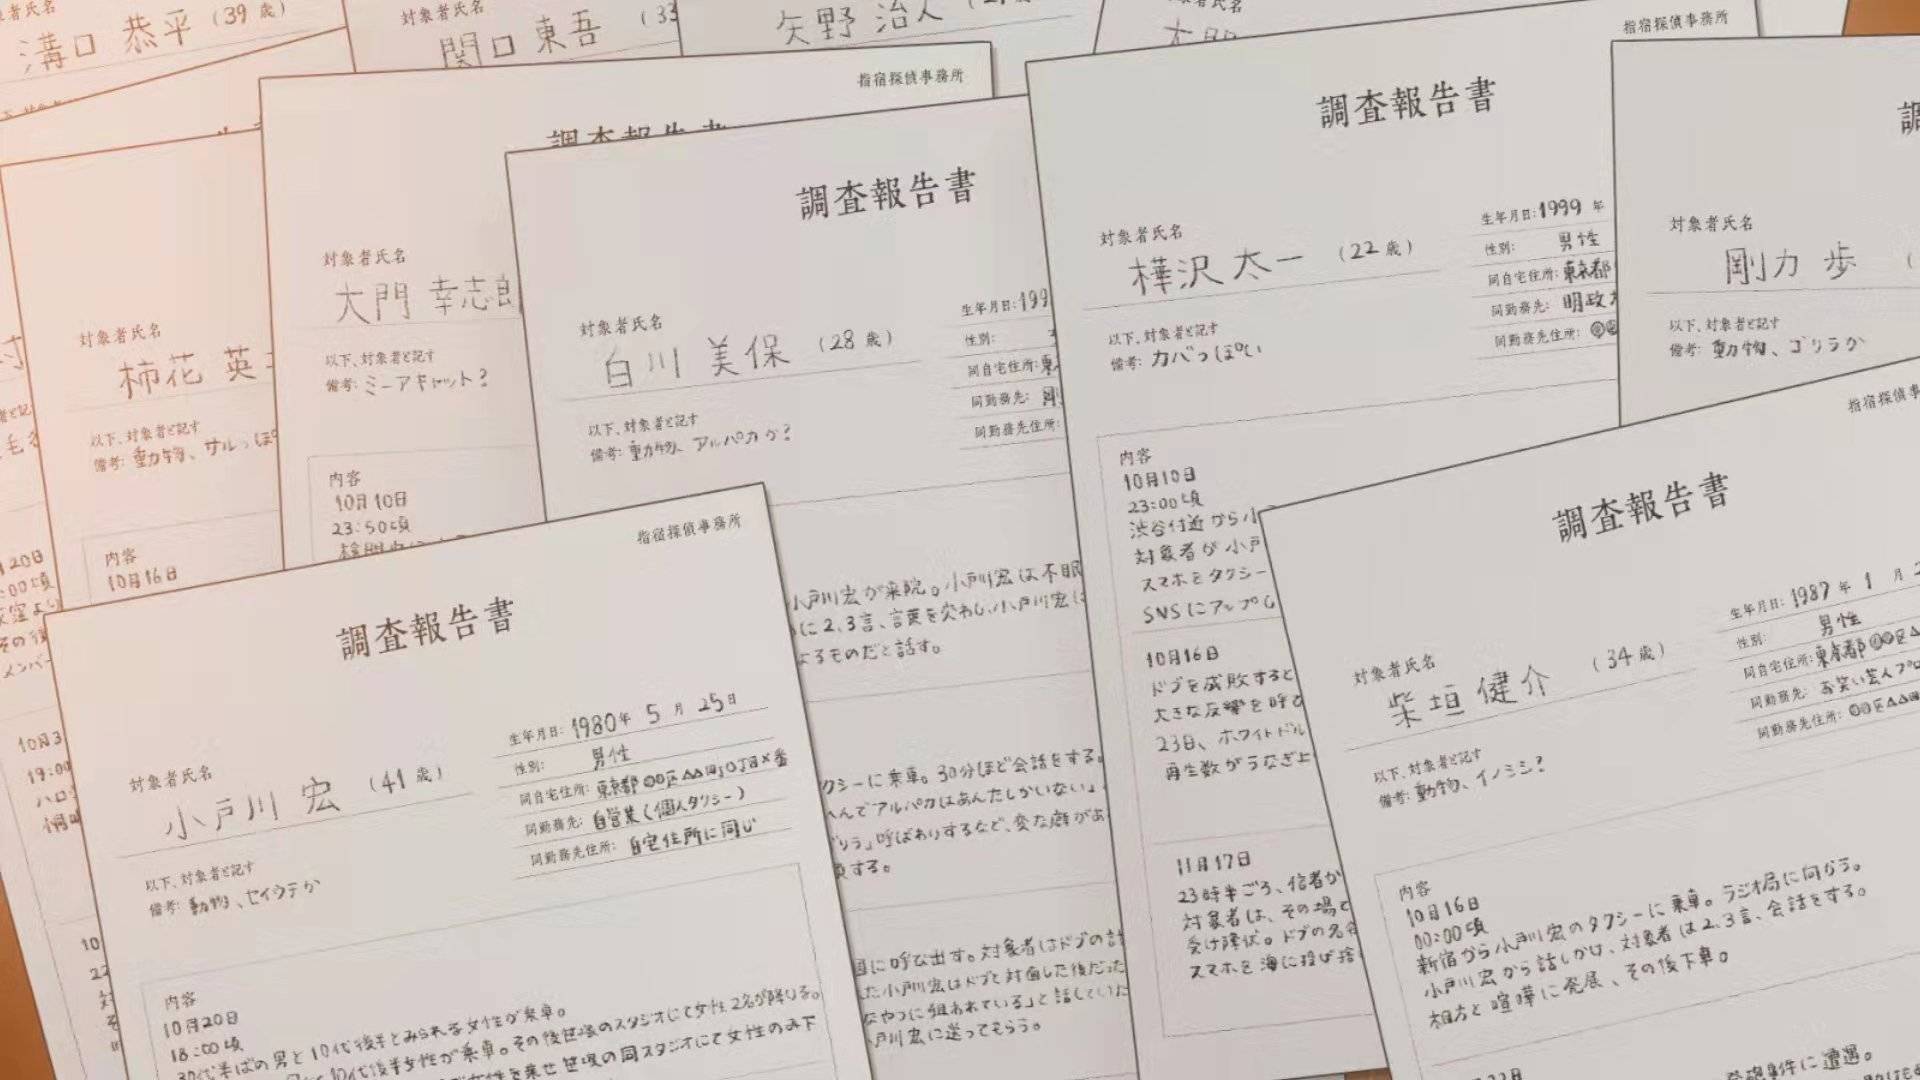 溝口 恭平 (39歳)
対象者氏名
関口 東吾 (33
矢野 治人
指宿探偵事務所
対象者氏名
柿花 英
以下、対象者と記す
備考: 動物、サルっぽ
内容
10月16日
指宿探偵事務所
調査報告書
対象者氏名
大門 幸志郎
以下、対象者と記す
備考: ミーアキャット?
内容
10月10日
23:50頃
調査報告書
対象者氏名
白川 美保 (28歳)
生年月日: 199
性別:
同自宅住所: 東
同勤務先: 剛
同勤務先住所:
以下、対象者と記す
備考: 動物、アルパカか?
小戸川宏が来院。小戸川宏は不眠
に2,3言、言葉を交わし、小戸川宏は
よるものだと話す。
クシーに乗車。30分ほど会話をする。
んでアルパカはあんたしかいない」
リラ」呼ばわりするなど、変な癖があ
する。
に呼び出す。対象者はドブの計
た小戸川宏はドブと対面した後だった
なやつに狙われている」と話していた
戸川宏に送ってもらう。
調査報告書
対象者氏名
樺沢 太一 (22歳)
生年月日: 1999年
性別: 男性
同自宅住所: 東京都
同勤務先: 明政
同勤務先住所:
以下、対象者と記す
備考: カバっぽい
内容
10月10日
23:00頃
渋谷付近から小
対象者が小戸
スマホをタクシー
SNSにアップし
10月16日
ドブを成敗すると
大きな反響を呼
23日、ホワイトドル
再生数がうなぎ上
11月17日
23時半ごろ、信者か
対象者は、その場で
受け降伏。ドブの名
スマホを海に投げ捨
指宿探偵事務所
対象者氏名
剛力 歩
以下、対象者と記す
備考: 動物、ゴリラか
指宿探偵事務所
調査報告書
対象者氏名
小戸川 宏 (41歳)
生年月日: 1980年 5月 25日
性別: 男性
同自宅住所: 東京都◎◎区△△町○丁目×番
同勤務先: 自営業(個人タクシー)
同勤務先住所: 自宅住所に同じ
以下、対象者と記す
備考: 動物、セイウチか
内容
10月20日
18:00頃
30代半ばの男と10代後半とみられる女性が乗車。
10代後半女性が乗車。その後笹塚のスタジオにて女性2名が降りる。
女性を乗せ笹塚の同スタジオにて女性のみ下
指宿探偵事
調査報告書
対象者氏名
柴垣 健介 (34歳)
生年月日: 1987年 1月 2
性別: 男性
同自宅住所: 東京都◎◎区△
同勤務先: お笑い芸人プロ
同勤務先住所: ◎◎区△△
以下、対象者と記す
備考: 動物、イノシシ?
内容
10月16日
00:00頃
新宿から小戸川宏のタクシーに乗車。ラジオ局に向かう。
小戸川宏から話しかけ、対象者は2,3言、会話をする。
相方と喧嘩に発展、その後下車。
発砲事件に遭遇。